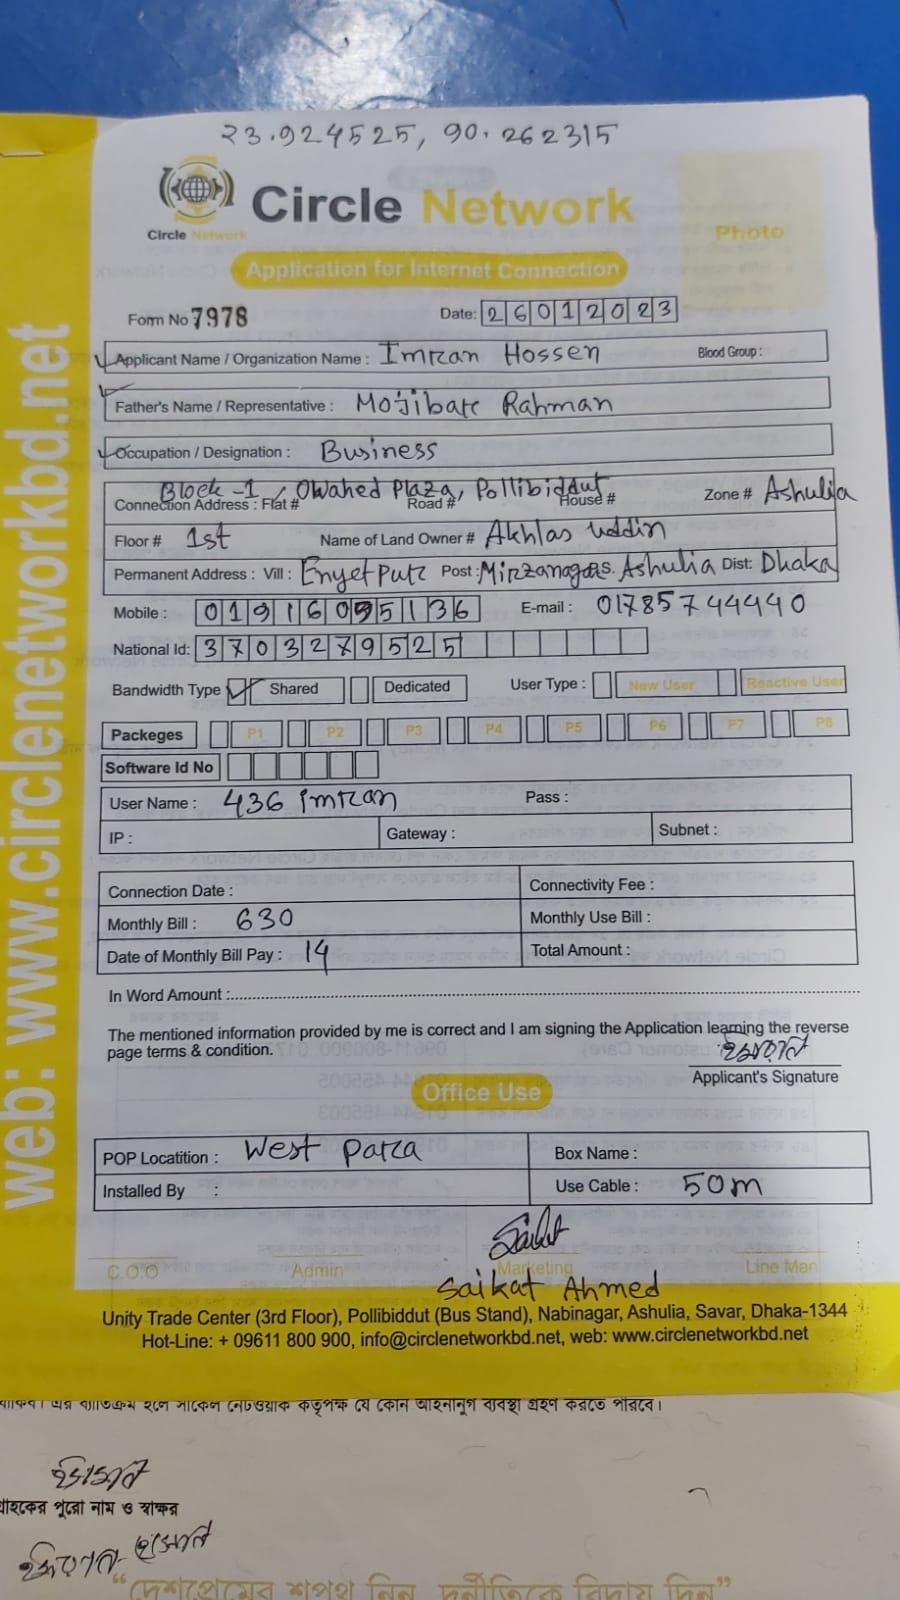 23.924525, 90.262315
Circle Network
Circle Network
Photo
Application for Internet Connection
Form No 7978 Date: 26012023
Applicant Name / Organization Name : Imran Hossen Blood Group :
Father's Name / Representative : Mojibar Rahman
Occupation / Designation : Business
Block-1, Owahed Plaza, Pollibiddut
Connection Address : Flat # Road # House # Zone # Ashulia
Floor # 1st Name of Land Owner # Akhlas uddin
Permanent Address : Vill : Enyetpur Post : Mirzanagar P.S. Ashulia Dist: Dhaka
Mobile : 01916095136 E-mail : 01785744440
National Id: 3703279525
Bandwidth Type Shared Dedicated User Type : New User Reactive User
Packeges P1 P2 P3 P4 P5 P6 P7 P8
Software Id No
User Name : 436 imran Pass :
IP : Gateway : Subnet :
Connection Date : Connectivity Fee :
Monthly Bill : 630 Monthly Use Bill :
Date of Monthly Bill Pay : 14 Total Amount :
In Word Amount :
The mentioned information provided by me is correct and I am signing the Application learning the reverse
page terms & condition.
ইমরান
Applicant's Signature
Office Use
POP Locatition : West Para Box Name :
Installed By : Use Cable : 50m
Saikat
C.O.O Admin Marketing Line Man
Saikat Ahmed
Unity Trade Center (3rd Floor), Pollibiddut (Bus Stand), Nabinagar, Ashulia, Savar, Dhaka-1344
Hot-Line: + 09611 800 900, info@circlenetworkbd.net, web: www.circlenetworkbd.net
web: www.circlenetworkbd.net
এর ব্যতিক্রম হলে সার্কেল নেটওয়ার্ক কতৃপক্ষ যে কোন আইনানুগ ব্যবস্থা গ্রহণ করতে পারবে।
ইমরান
গ্রাহকের পুরো নাম ও স্বাক্ষর
ইমরান হোসেন
“দেশপ্রেমের শপথ নিন, দুর্নীতিকে বিদায় দিন”